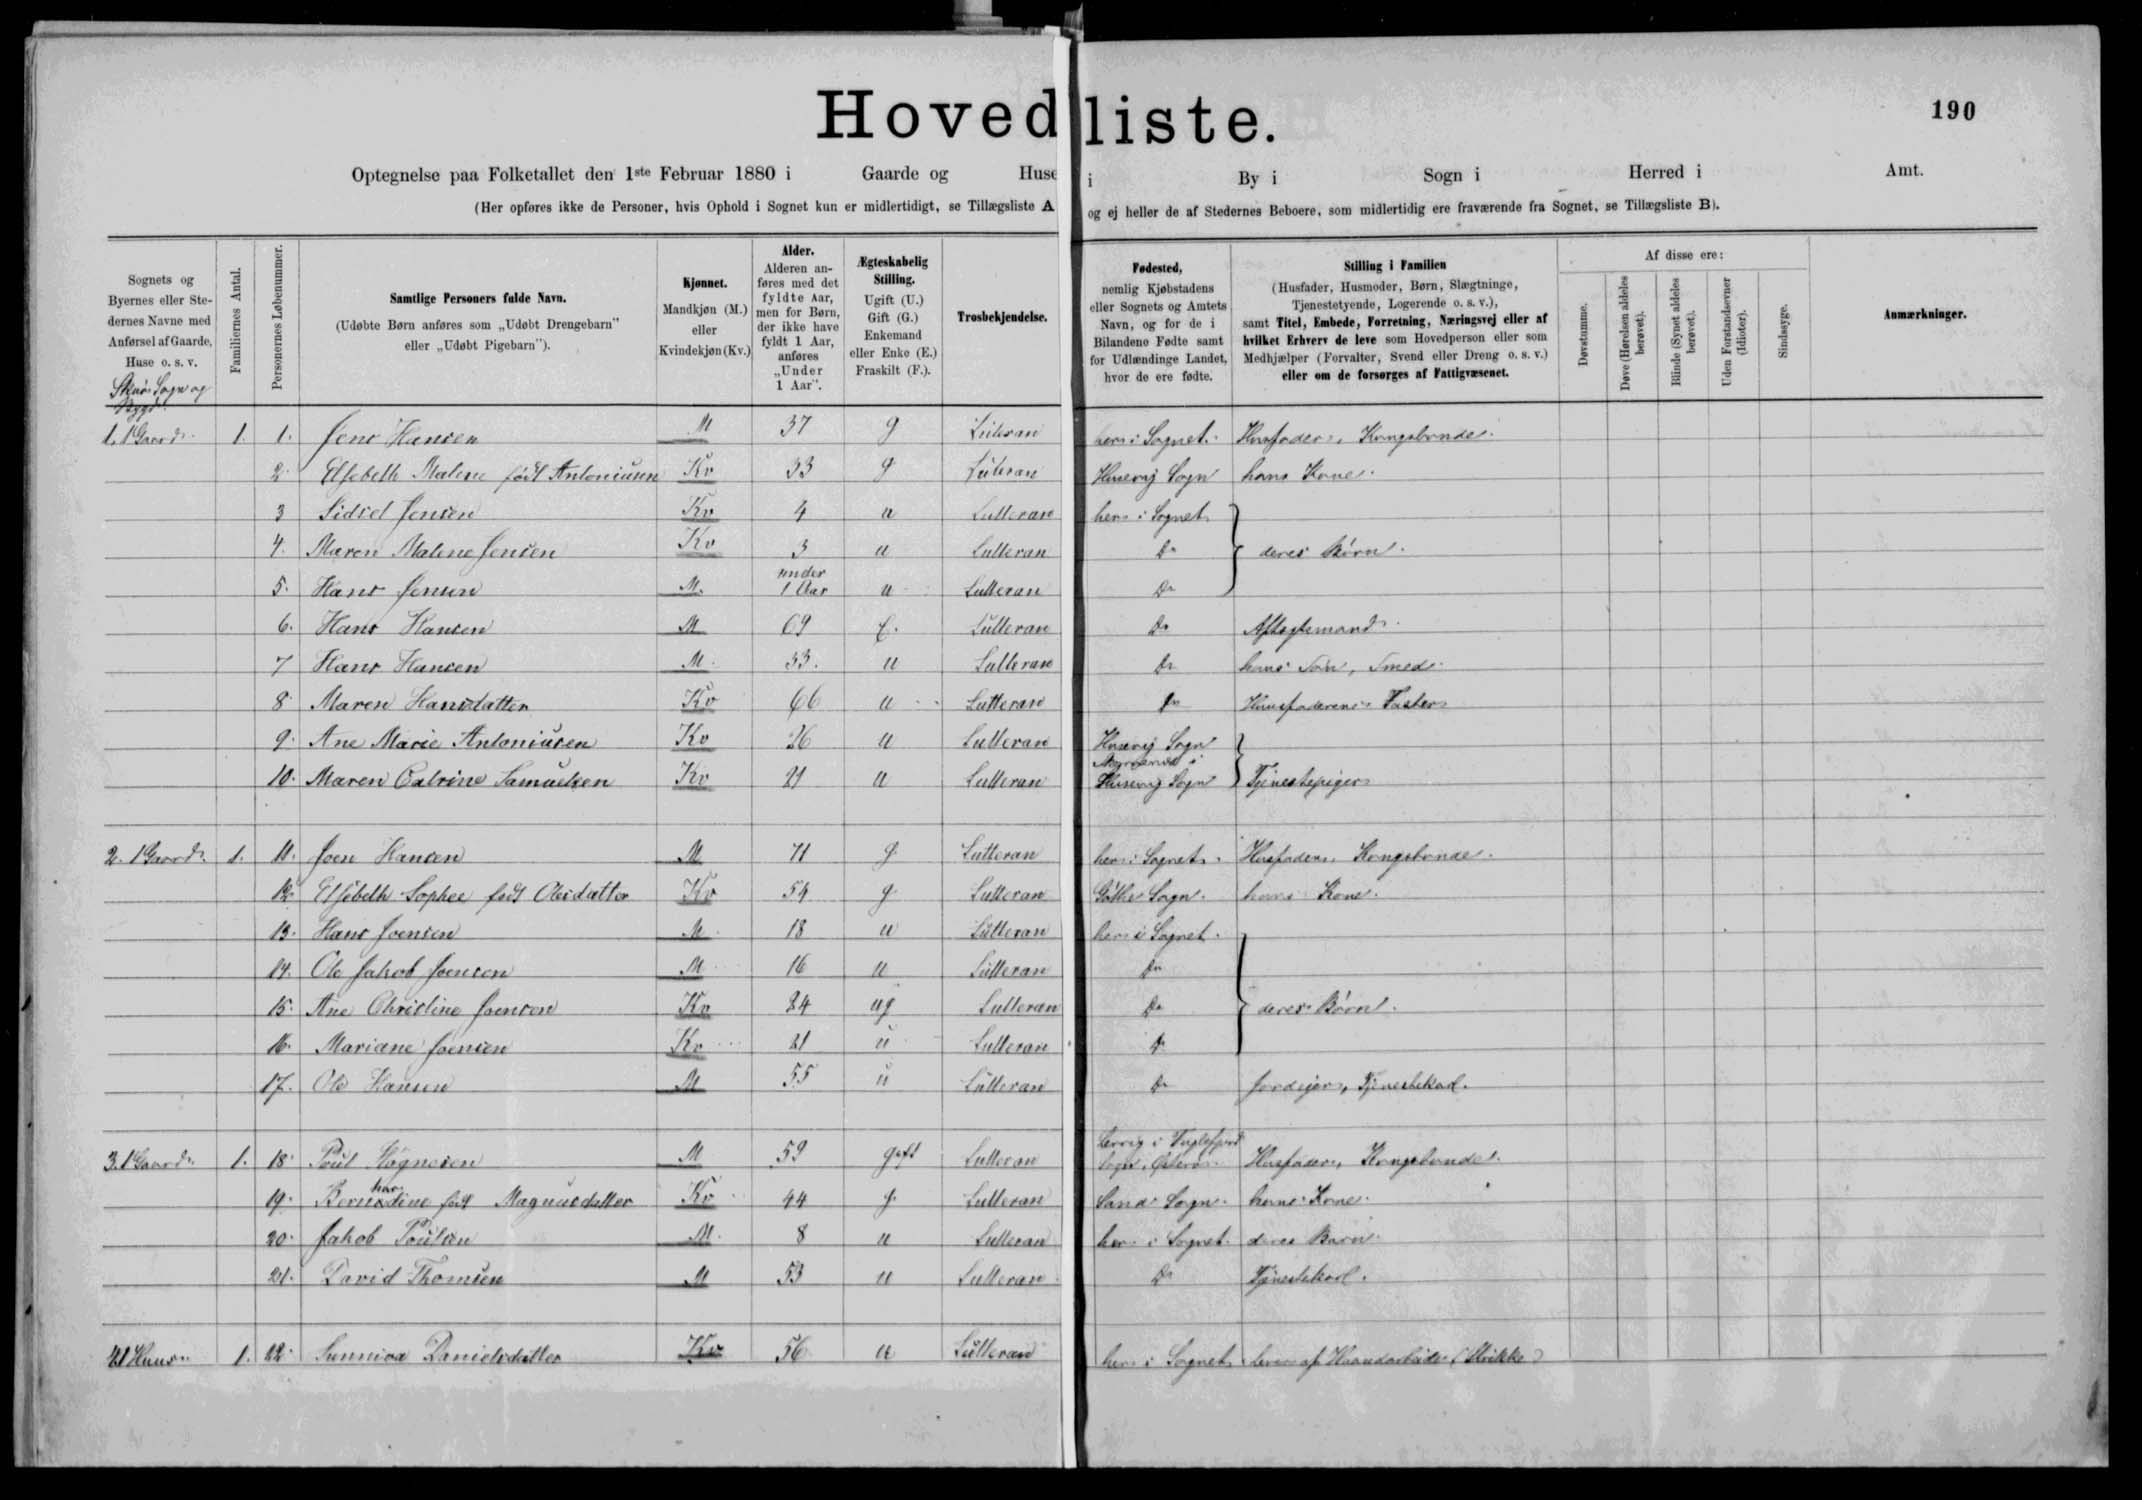 Hovedliste.
190
Optegnelse paa Folketallet den 1ste Februar 1880 i Gaarde og Huse i By i Sogn i Herred i Amt.
(Her opføres ikke de Personer, hvis Ophold i Sognet kun er midlertidigt, se Tillægsliste A og ej heller de af Stedernes Beboere, som midlertidig ere fraværende fra Sognet, se Tillægsliste B).
Sognets og Byernes eller Stedernes Navne med Anførsel af Gaarde, Huse o. s. v.
Familiernes Antal.
Personernes Løbenummer.
Samtlige Personers fulde Navn.
(Udøbte Børn anføres som „Udøbt Drengebarn" eller „Udøbt Pigebarn").
Kjønnet.
Mandkjøn (M.) eller Kvindekjøn (Kv.)
Alder.
Alderen anføres med det fyldte Aar, men for Børn, der ikke have fyldt 1 Aar, anføres „Under 1 Aar".
Ægteskabelig Stilling.
Ugift (U.) Gift (G.) Enkemand eller Enke (E.) Fraskilt (F.).
Trosbekjendelse.
Fødested,
nemlig Kjøbstadens eller Sognets og Amtets Navn, og for de i Bilandene Fødte samt for Udlændinge Landet, hvor de ere fødte.
Stilling i Familien
(Husfader, Husmoder, Børn, Slægtninge, Tjenestetyende, Logerende o. s. v.),
samt Titel, Embede, Forretning, Næringsvej eller af hvilket Erhverv de leve som Hovedperson eller som Medhjælper (Forvalter, Svend eller Dreng o. s. v.) eller om de forsørges af Fattigvæsenet.
Af disse ere:
Døvstumme.
Døve (Hørelsen aldeles berøvet).
Blinde (Synet aldeles berøvet).
Uden Forstandsevner (Idioter).
Sindssyge.
Anmærkninger.
Skuø Sogn og Bygd.
1. 1 Gaard. 1. 1. Jens Hansen M 37 g Luteran her i Sognet. Husfader, Kongsbonde.
2. Elsebeth Malene født Antoniusen Kv 33 g Luteran Husevig Sogn hans Kone.
3 Sidsel Jensen Kv 4 u Lutteran her i Sognet
4. Maren Malene Jensen Kv 3 u Lutteran Do deres Børn.
5. Hans Jensen M. under 1 Aar u Lutteran Do
6. Hans Hansen M 69 E. Lutteran Do Aftægtsmand.
7 Hans Hansen M. 33. u Lutteran Do hans Søn, Smed.
8 Maren Hansdatter Kv 66 u Lutteran Do Huusfaderens Faster
9. Ane Marie Antoniusen Kv 26 u Lutteran Husevig Sogn
10. Maren Catrine Samuelsen Kv 21 u Lutteran Husevig Sogn Tjenestepiger
2. 1 Gaard. 1. 11. Joen Hansen M 71 g. Lutteran her i Sognet. Husfader, Kongsbonde.
12. Elsebeth Sophie født Olesdatter Kv 54 g Lutteran Gøthe Sogn. hans Kone.
13. Hans Joensen M. 18 u Lutteran her i Sognet.
14. Ole Jakob Joensen M 16 u Lutteran Do
15. Ane Christine Joensen Kv 24 ug Lutteran Do deres Børn.
16. Mariane Joensen Kv 21 u Lutteran Do
17. Ole Hansen M 55 u Lutteran Do Jordejer, Tjenestekarl.
3. 1 Gaard. 1. 18. Poul Høgnesen M 59 gift Lutteran Lervig i Fuglefjord Sogn, Østerø. Husfader, Kongsbonde.
19. Bernhardine født Magnusdatter Kv 44 g. Lutteran Sand Sogn. hans Kone.
20. Jakob Poulsen M. 8 u Lutteran her i Sognet. deres Barn.
21. David Thomsen M 53 u Lutteran Do Tjenestekarl.
4. 1 Huus. 1. 22. Sunniva Danielsdatter Kv 56 u Lutteran her i Sognet lever af Haandarbeide (Strikke)